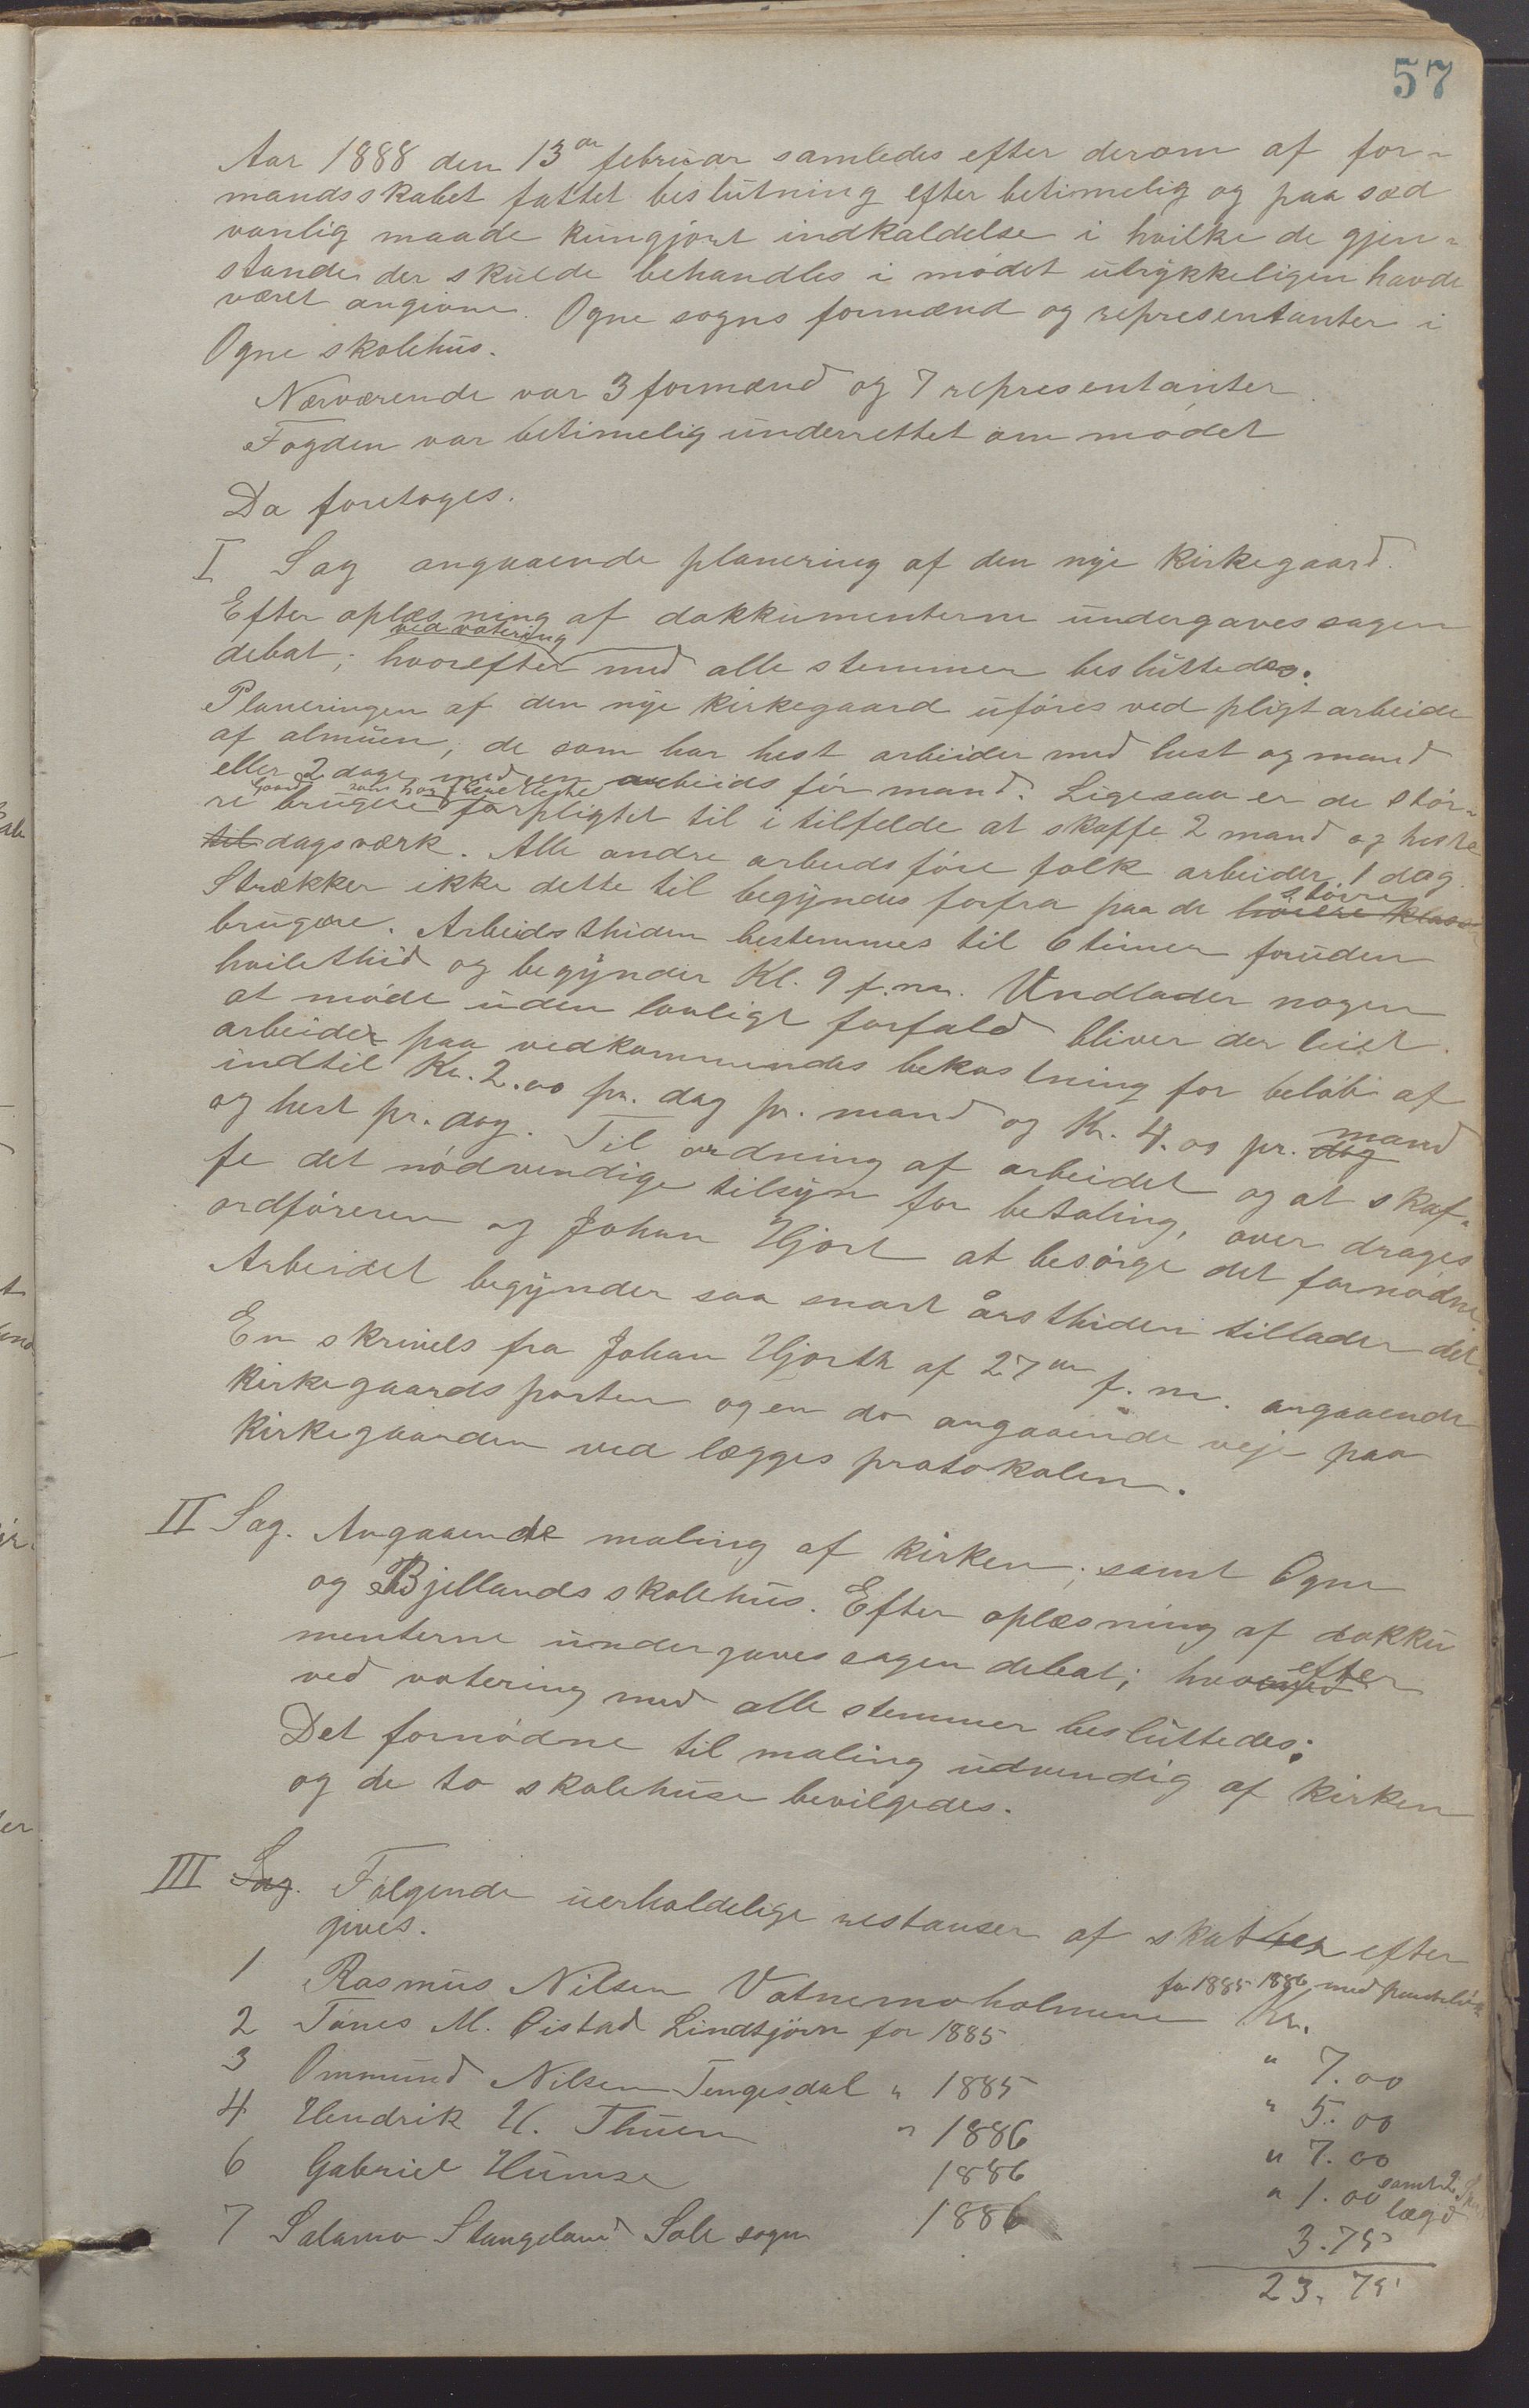 57
Aar 1888 den 13de februar samledes efter derom af for-
mandsskabet fattet beslutning efter betimelig og paa sæd
vanlig maade kungjort indkaldelse i hvilke de gjen-
stande der skulde behandles i mødet utrykkeligen havde
været angivne. Ogne sogns formænd og representanter i
Ogne skolehus.
Nærværende var 3 formænd og 7 representanter.
Fogden var betimelig underrettet om mødet
Da foretoges.
I Sag angaaende planering af den nye kirkegaard.
Efter oplæsning af dokkumenterne undergaves sagen
debat; hvorefter ved votering med alle stemmer besluttedes:
Planeringen af den nye kirkegaard uføres ved pligtarbeide
af almuen, de som har hest arbeider med hest og mand
eller 2 dage med en arbeidsfør mand. Ligesaa er de stør-
re brugere som har flere heste forpligtet til i tilfelde at skaffe 2 mand og heste
til dagsværk. Alle andre arbeidsføre folk arbeider 1 dag.
Strækker ikke dette til begyndes forfra paa de høiere klasse større
brugere. Arbeidsthiden bestemmes til 6 timer foruden
hvilethid og begynder Kl. 9 f.m. Undlader nogen
at møde uden lovligt forfald bliver der leiet
arbeider paa vedkommendes bekostning for beløb af
indtil Kr. 2.00 pr. dag pr. mand og Kr. 4.00 pr. dag mand
og hest pr. dag. Til ordning af arbeidet og at skaf-
fe det nødvendige tilsyn for betaling, over drages
ordføreren og Johan Hjort at besørge det fornødne
Arbeidet begynder saa snart årsthiden tillader det.
En skrivels fra Johan Hjorth af 27de f. m. angaaende
kirkegaardsporten og en do angaaende veje paa
kirkegaarden ved lægges protokolen.
II Sag. Angaaende maling af kirken; samt Ogne
og Bjellands skolehus. Efter oplæsning af dokku
menterne undergaves sagen debat; hvorefter
ved votering med alle stemmer besluttedes:
Det fornødne til maling udvendig af kirken
og de to skolehuse bevilgedes.
III Sag. Følgende uerholdelige restanser af skatter efter
gives.
1 Rasmus Nilsen Vatnemoholmene for 1885 1886 med Kr.
2 Tønes M. Øistad Lindtjørn for 1885 " 7.00
3 Ommund Nilsen Tengesdal " 1885 " 5.00
4 Hendrik H. Thuen " 1886 " 7.00
6 Gabriel Humse 1886 " 1.00 samt 2 lægd
7 Salamo Stangeland Sole sogn 1886 3.75
23.75